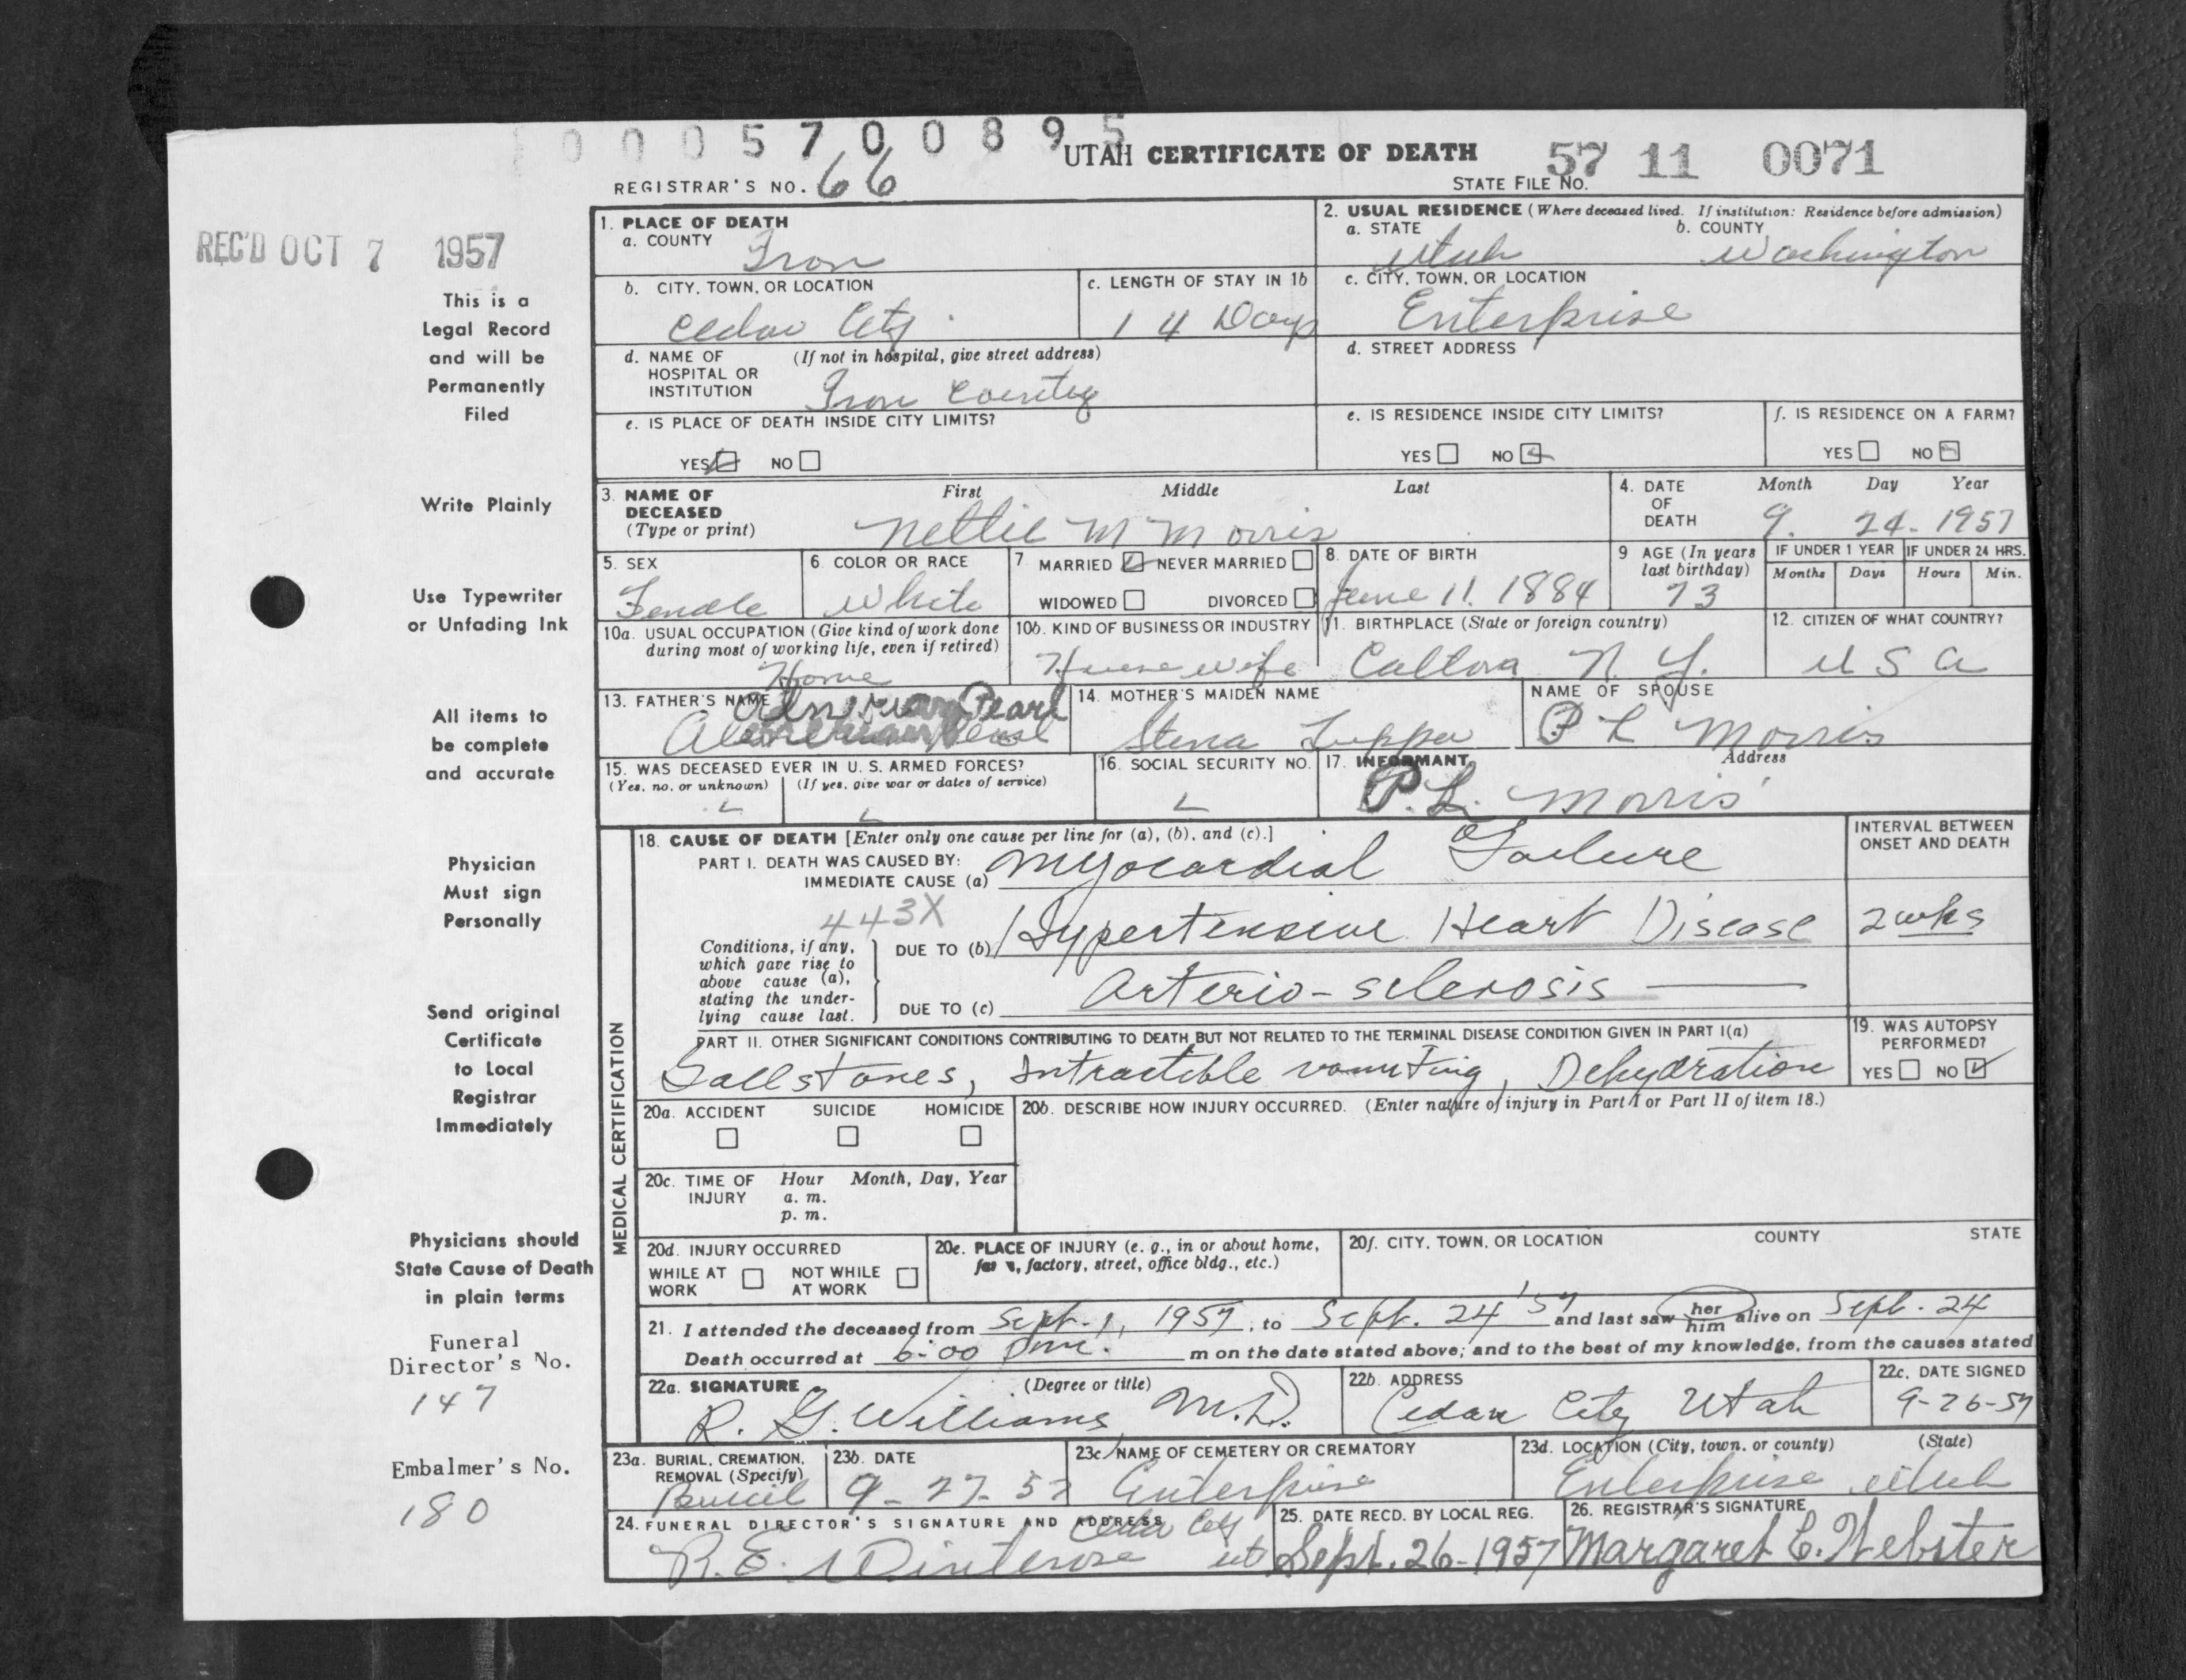 0005700895
UTAH CERTIFICATE OF DEATH
57 11 0071
REGISTRAR'S NO. 66
STATE FILE NO.
REC'D OCT 7 1957
This is a
Legal Record
and will be
Permanently
Filed
Write Plainly
Use Typewriter
or Unfading Ink
All items to
be complete
and accurate
Physician
Must sign
Personally
Send original
Certificate
to Local
Registrar
Immediately
Physicians should
State Cause of Death
in plain terms
Funeral
Director's No.
147
Embalmer's No.
180
1. PLACE OF DEATH
a. COUNTY Iron
2. USUAL RESIDENCE (Where deceased lived. If institution: Residence before admission)
a. STATE Utah b. COUNTY Washington
b. CITY, TOWN, OR LOCATION Cedar City
c. LENGTH OF STAY IN 1b 14 Days
c. CITY, TOWN, OR LOCATION Enterprise
d. NAME OF HOSPITAL OR INSTITUTION (If not in hospital, give street address) Iron County
d. STREET ADDRESS
e. IS PLACE OF DEATH INSIDE CITY LIMITS?
YES NO
e. IS RESIDENCE INSIDE CITY LIMITS?
YES NO
f. IS RESIDENCE ON A FARM?
YES NO
3. NAME OF DECEASED (Type or print) First Middle Last
Nettie M Morris
4. DATE OF DEATH Month Day Year
9. 24. 1957
5. SEX Female
6. COLOR OR RACE White
7 MARRIED NEVER MARRIED
WIDOWED DIVORCED
8. DATE OF BIRTH June 11. 1884
9 AGE (In years last birthday) 73
IF UNDER 1 YEAR Months Days
IF UNDER 24 HRS. Hours Min.
10a. USUAL OCCUPATION (Give kind of work done during most of working life, even if retired) Home
10b. KIND OF BUSINESS OR INDUSTRY House wife
11. BIRTHPLACE (State or foreign country) N. Y.
12. CITIZEN OF WHAT COUNTRY? U S A
13. FATHER'S NAME Pearl
14. MOTHER'S MAIDEN NAME
NAME OF SPOUSE P L Morris
15. WAS DECEASED EVER IN U. S. ARMED FORCES?
(Yes, no, or unknown) (If yes, give war or dates of service)
16. SOCIAL SECURITY NO.
17. INFORMANT Address
P. L. Morris
MEDICAL CERTIFICATION
18. CAUSE OF DEATH [Enter only one cause per line for (a), (b), and (c).]
INTERVAL BETWEEN ONSET AND DEATH
PART I. DEATH WAS CAUSED BY:
IMMEDIATE CAUSE (a) Myocardial Failure
443X
Conditions, if any, which gave rise to above cause (a), stating the underlying cause last.
DUE TO (b) Hypertensive Heart Disease 2 wks
DUE TO (c) Arterio-sclerosis
PART II. OTHER SIGNIFICANT CONDITIONS CONTRIBUTING TO DEATH BUT NOT RELATED TO THE TERMINAL DISEASE CONDITION GIVEN IN PART I(a)
Gallstones, Intractible vomiting, Dehydration
19. WAS AUTOPSY PERFORMED?
YES NO
20a. ACCIDENT SUICIDE HOMICIDE
20b. DESCRIBE HOW INJURY OCCURRED. (Enter nature of injury in Part I or Part II of item 18.)
20c. TIME OF INJURY Hour Month, Day, Year
a. m.
p. m.
20d. INJURY OCCURRED
WHILE AT WORK NOT WHILE AT WORK
20e. PLACE OF INJURY (e. g., in or about home, farm, factory, street, office bldg., etc.)
20f. CITY, TOWN, OR LOCATION COUNTY STATE
21. I attended the deceased from Sept. 1, 1957, to Sept. 24 '57 and last saw her him alive on Sept. 24
Death occurred at 6:00 pm. m on the date stated above; and to the best of my knowledge, from the causes stated
22a. SIGNATURE (Degree or title) R. G. Williams M.D.
22b. ADDRESS Cedar City Utah
22c. DATE SIGNED 9-26-57
23a. BURIAL, CREMATION, REMOVAL (Specify) Burial
23b. DATE 9-27-57
23c. NAME OF CEMETERY OR CREMATORY Enterprise
23d. LOCATION (City, town, or county) (State) Enterprise Utah
24. FUNERAL DIRECTOR'S SIGNATURE AND ADDRESS Cedar City
R. E. ut
25. DATE RECD. BY LOCAL REG. Sept. 26-1957
26. REGISTRAR'S SIGNATURE Margaret C. Webster